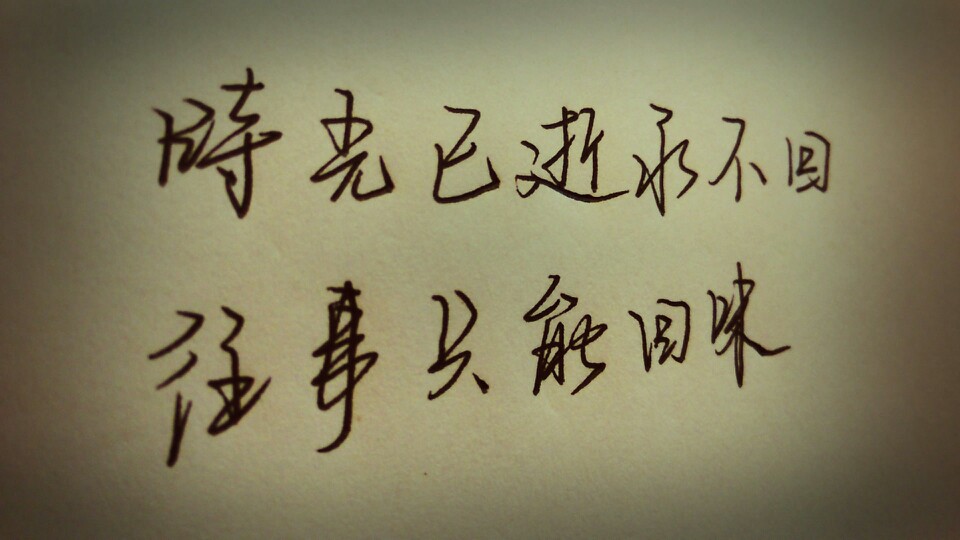 時光已逝永不回
往事只能回味